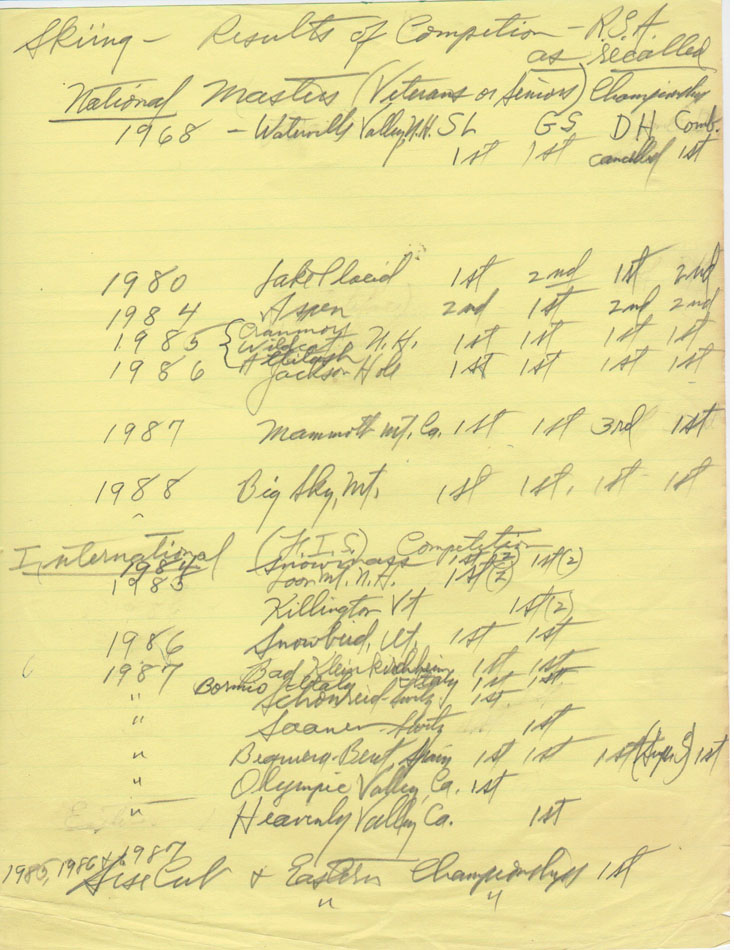 Skiing - Results of Competion - R.S.A.
as recalled
National Masters (Veterans or Seniors) Championships
1968 - Waterville Valley, N.H. SL GS DH Comb.
1st 1st cancelled 1st
1980 Lake Placid 1st 2nd 1st 2nd
1984 Aspen 2nd 1st 2nd 2nd
1985 { Cranmore
Wildcat N.H. 1st 1st 1st 1st
Attitash
1986 Jackson Hole 1st 1st 1st 1st
1987 Mammoth Mt. Ca. 1st 1st 3rd 1st
1988 Big Sky, Mt. 1st 1st. 1st 1st
International (F.I.S.) Competition
1984 Snowmass 1st(2) 1st(2)
1985 Loon Mt. N.H. 1st(2)
Killington Vt 1st(2)
1986 Snowbird, Ut. 1st 1st
1987 Bad Kleinkirchheim 1st 1st
Bormio Italy 1st 1st
" Schonreid Switz. 1st
" Saanen - Switz 1st
" Bequera-Beret, Spain 1st 1st 1st (Super G) 1st
" Olympic Valley, Ca. 1st
" Heavenly Valley, Ca. 1st
1985, 1986 & 1987
Sise Cub & Eastern Championships 1st
" "